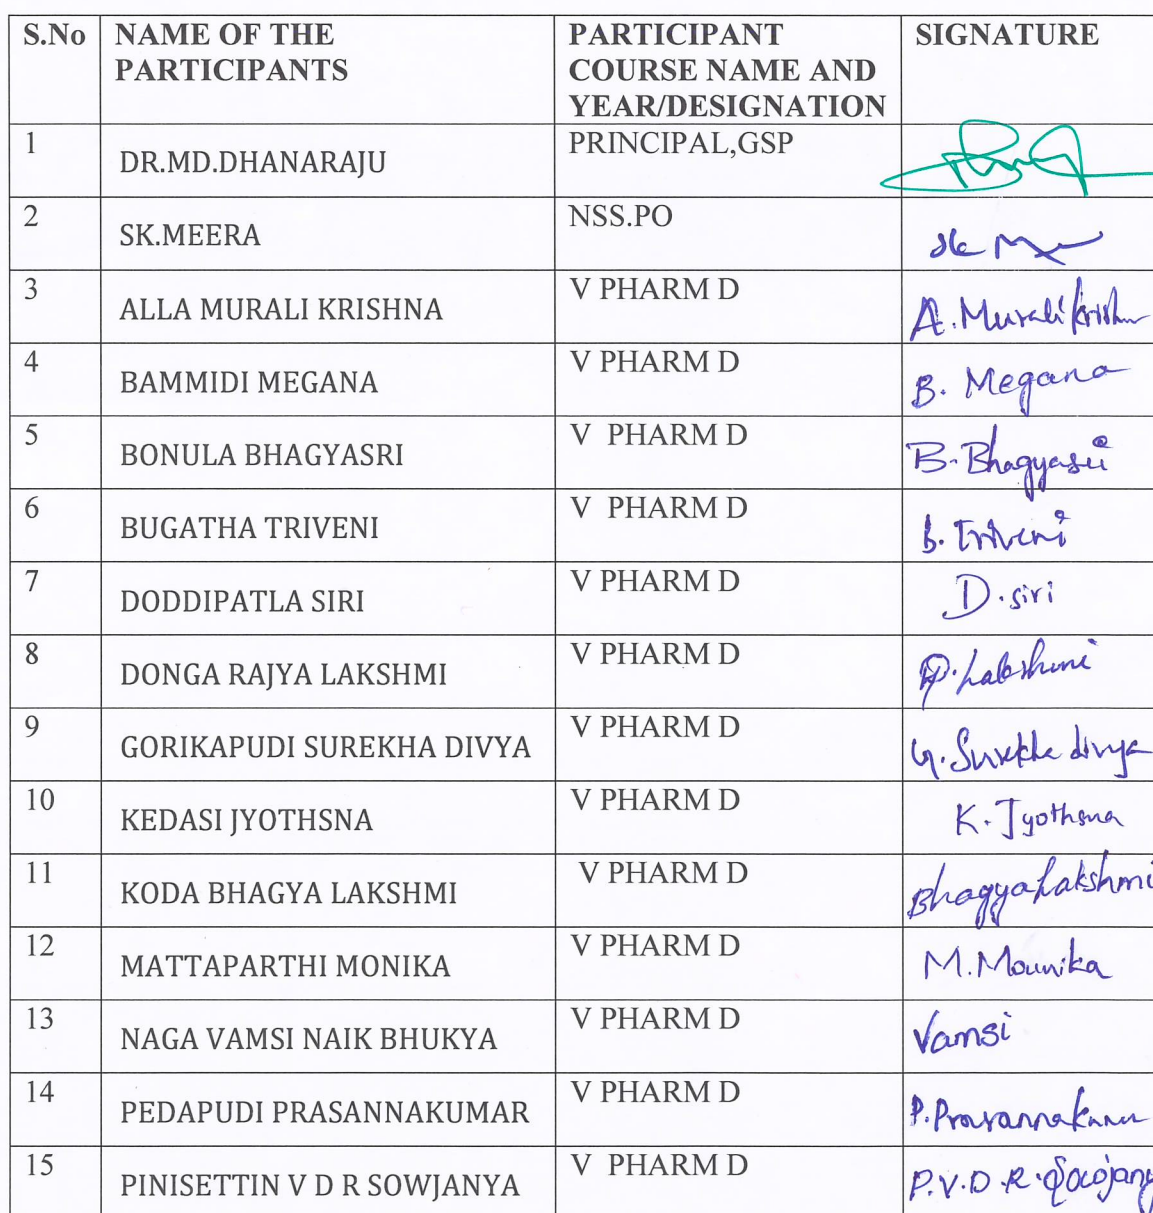 S.No NAME OF THE PARTICIPANTS PARTICIPANT COURSE NAME AND YEAR/DESIGNATION SIGNATURE
1 DR.MD.DHANARAJU PRINCIPAL,GSP
2 SK.MEERA NSS.PO
3 ALLA MURALI KRISHNA V PHARM D A. Murali Krishna
4 BAMMIDI MEGANA V PHARM D B. Megana
5 BONULA BHAGYASRI V PHARM D B. Bhagyasri
6 BUGATHA TRIVENI V PHARM D b. Triveni
7 DODDIPATLA SIRI V PHARM D D. siri
8 DONGA RAJYA LAKSHMI V PHARM D D. Lakshmi
9 GORIKAPUDI SUREKHA DIVYA V PHARM D G. Surekha divya
10 KEDASI JYOTHSNA V PHARM D K. Jyothsna
11 KODA BHAGYA LAKSHMI V PHARM D BhagyaLakshmi
12 MATTAPARTHI MONIKA V PHARM D M. Mounika
13 NAGA VAMSI NAIK BHUKYA V PHARM D Vamsi
14 PEDAPUDI PRASANNAKUMAR V PHARM D P. Prasannakumar
15 PINISETTIN V D R SOWJANYA V PHARM D P.V.D.R.